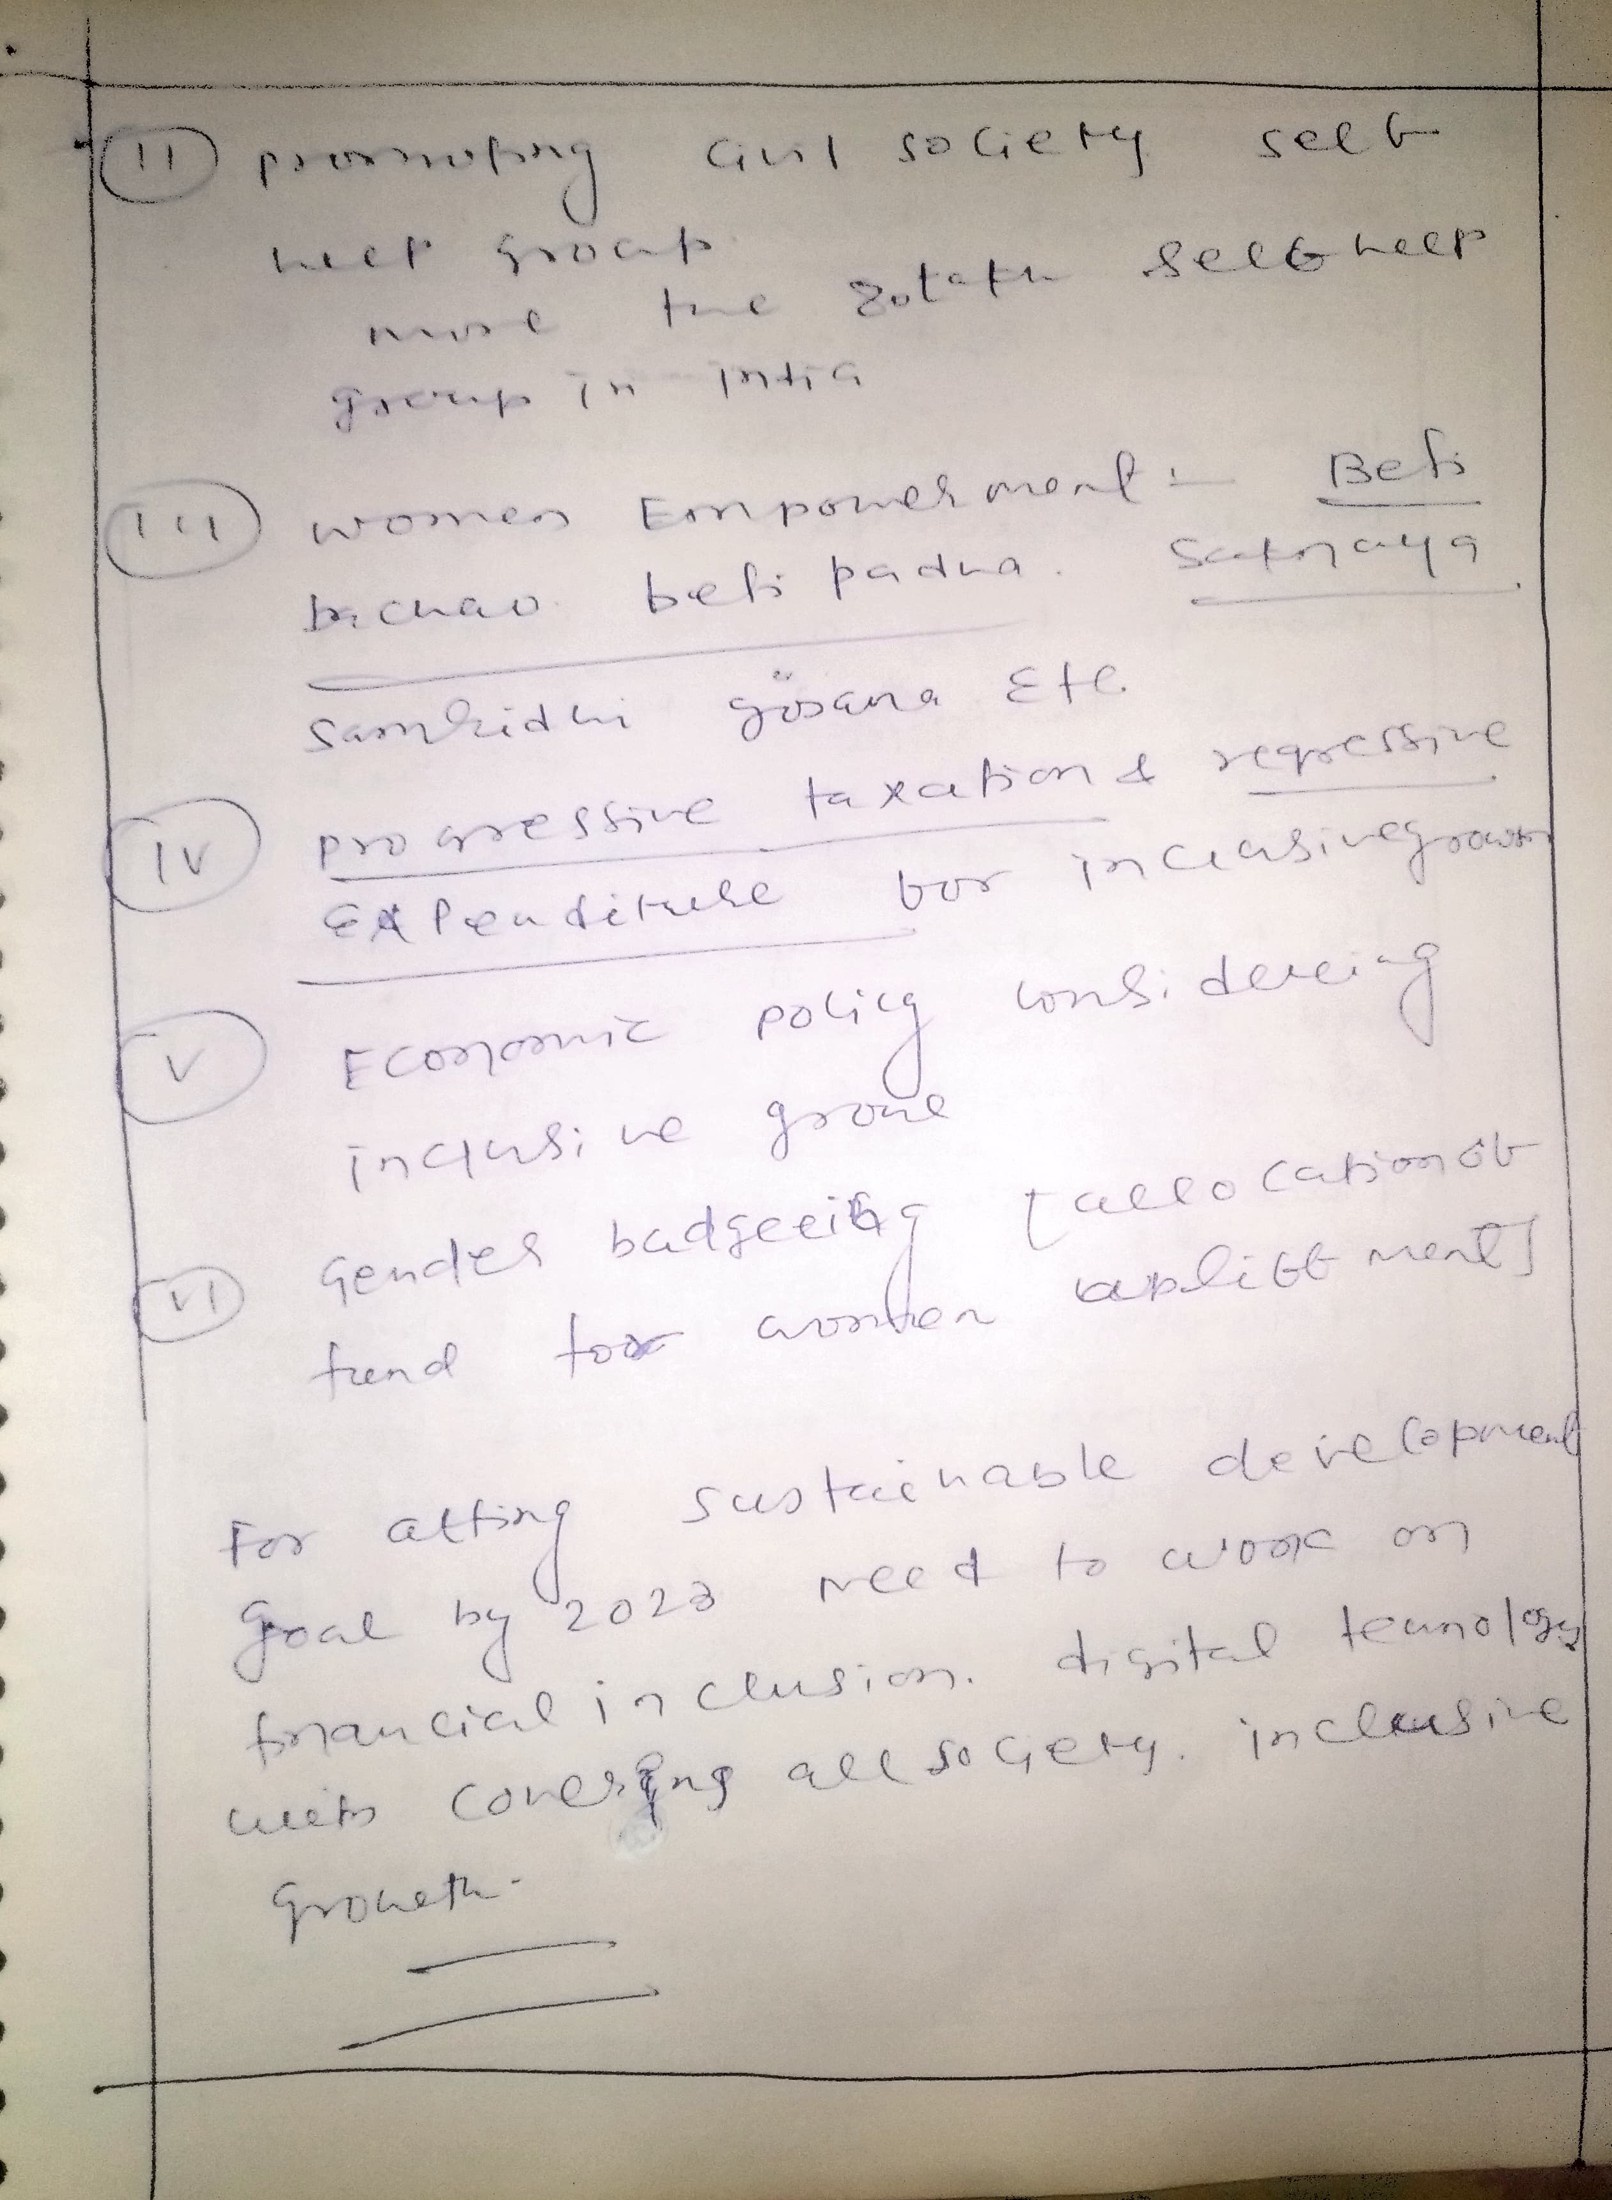 II promoting civil society self
help group
more the 20 lakh self help
group in India
III women Empowerment :- Beti
bachao beti padha. Suknaya
samridhi yojana Etc.
IV progressive taxation & regressive
Expenditure for inclusive growth
V Economic policy considering
inclusive grove
VI Gender budgeeting [allocation of
fund for women upliftment]
For atting sustainable development
goal by 2023 need to work on
financial inclusion. digital technology
with covering all society. inclusive
Groweth.